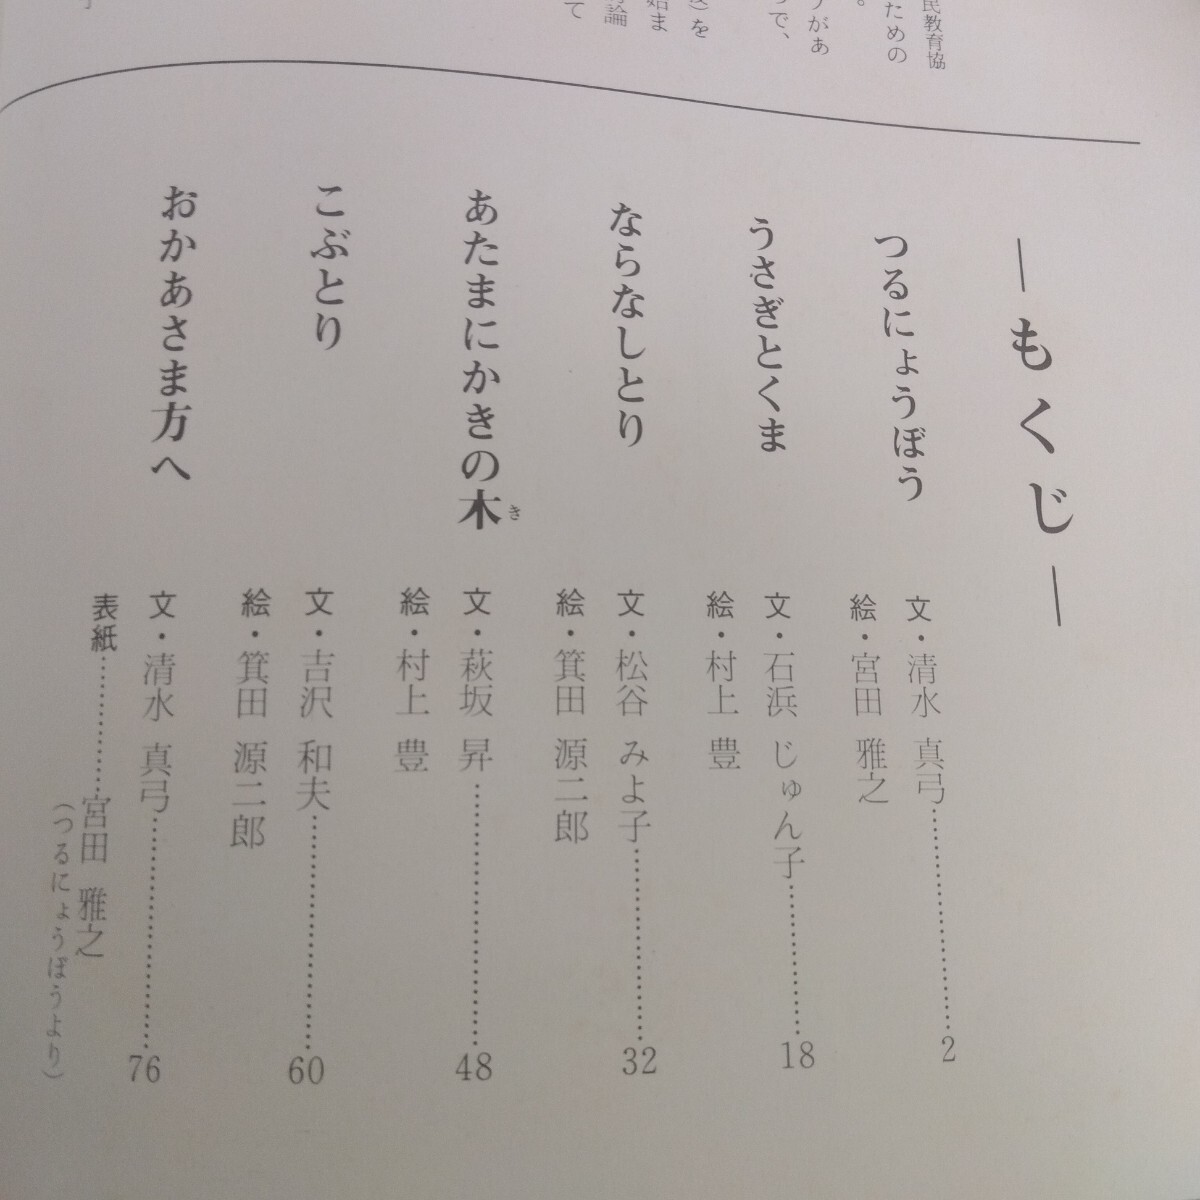 民教育協
ための
。
があ
で、
を
始ま
論
て
―もくじ―
つるにょうぼう
文・清水 真弓……………2
絵・宮田 雅之
うさぎとくま
文・石浜 じゅん子……………18
絵・村上 豊
ならなしとり
文・松谷 みよ子……………32
絵・箕田 源二郎
あたまにかきの木
き
文・萩坂 昇……………48
絵・村上 豊
こぶとり
文・吉沢 和夫……………60
絵・箕田 源二郎
おかあさま方へ
文・清水 真弓……………76
表紙……………宮田 雅之
（つるにょうぼうより）